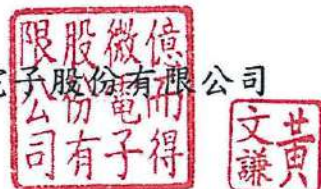 子股份有限公司
億而得
微電子
股份有
限公司
黃
文謙